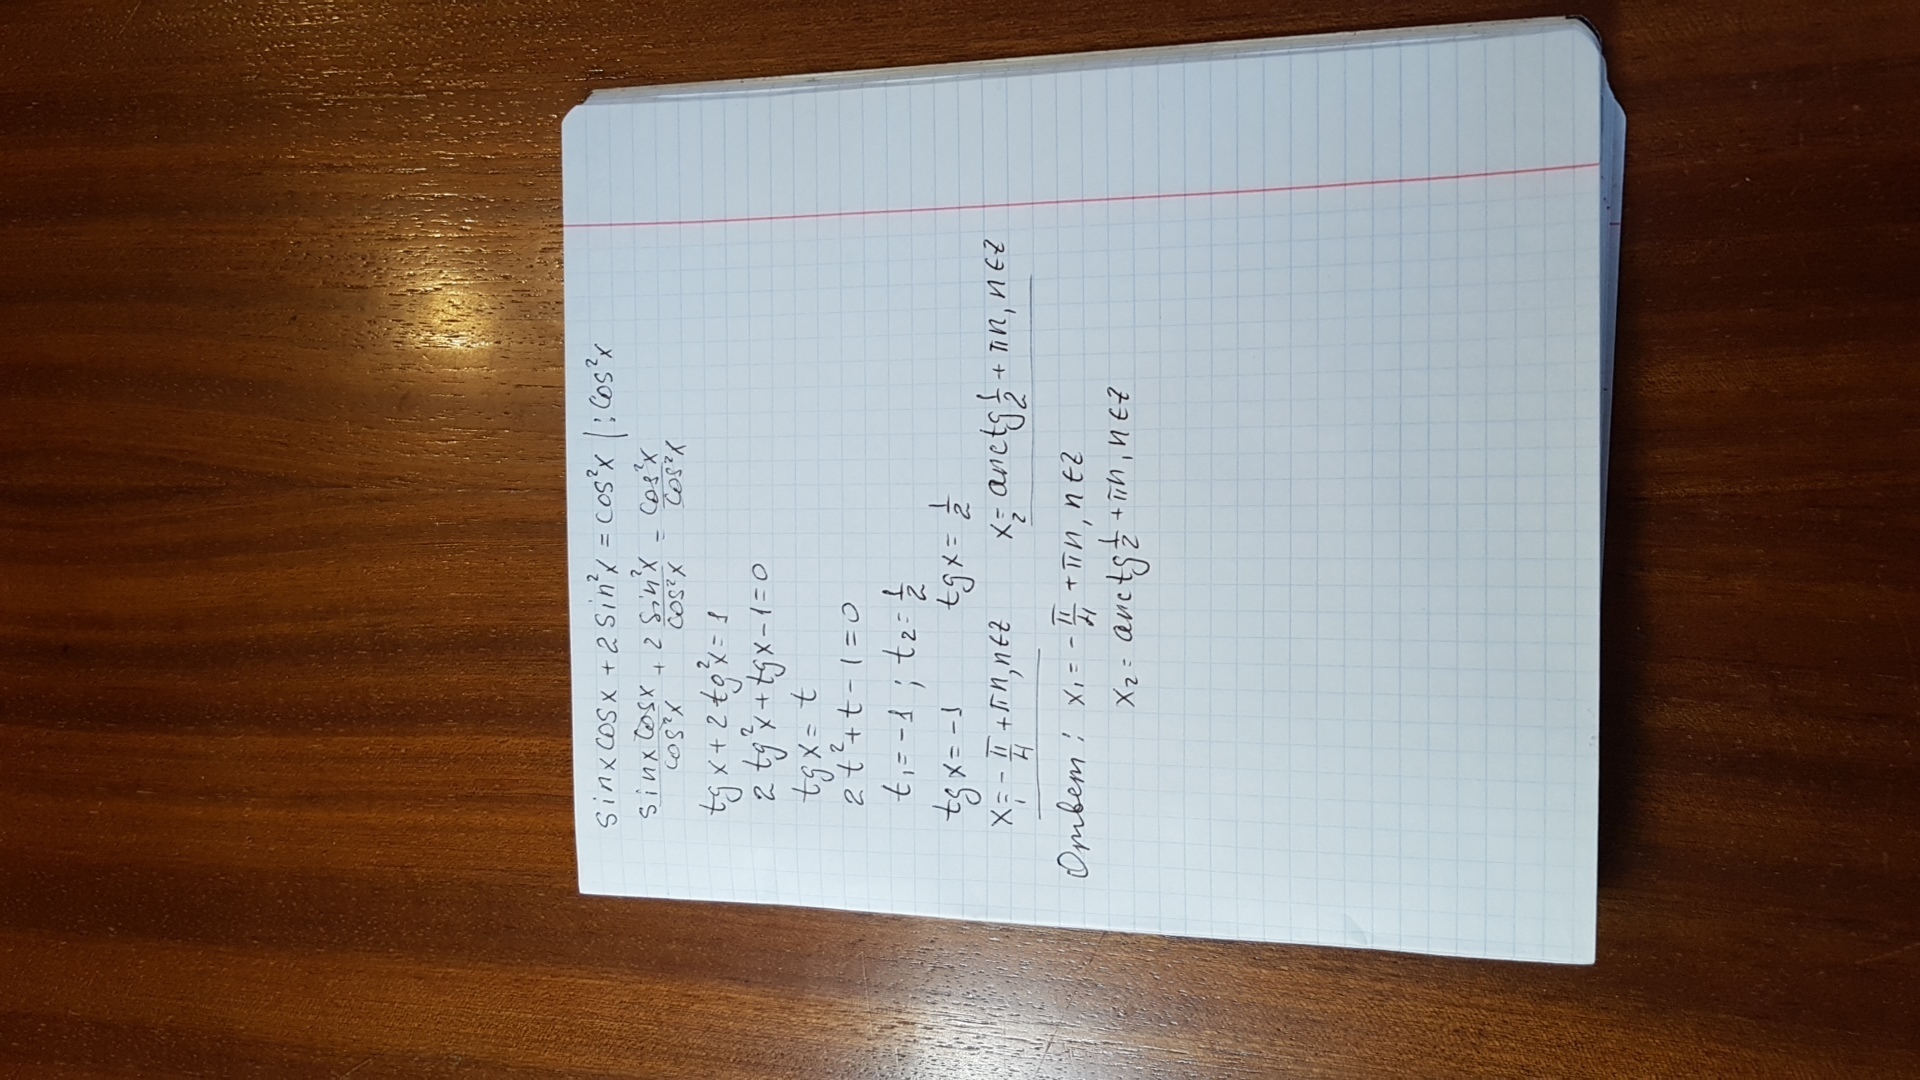 sinxcosx + 2sin²x = cos²x | : cos²x
sinxcosx/cos²x + 2 sin²x/cos²x = cos²x/cos²x
tgx + 2tg²x = 1
2tg²x + tgx - 1 = 0
tgx = t
2t² + t - 1 = 0
t₁ = -1 ; t₂ = 1/2
tgx = -1 tgx = 1/2
x₁ = -π/4 + πn, n∈Z x₂ = arctg 1/2 + πn, n∈Z
Ответ: x₁ = -π/4 + πn, n∈Z
x₂ = arctg 1/2 + πn, n∈Z